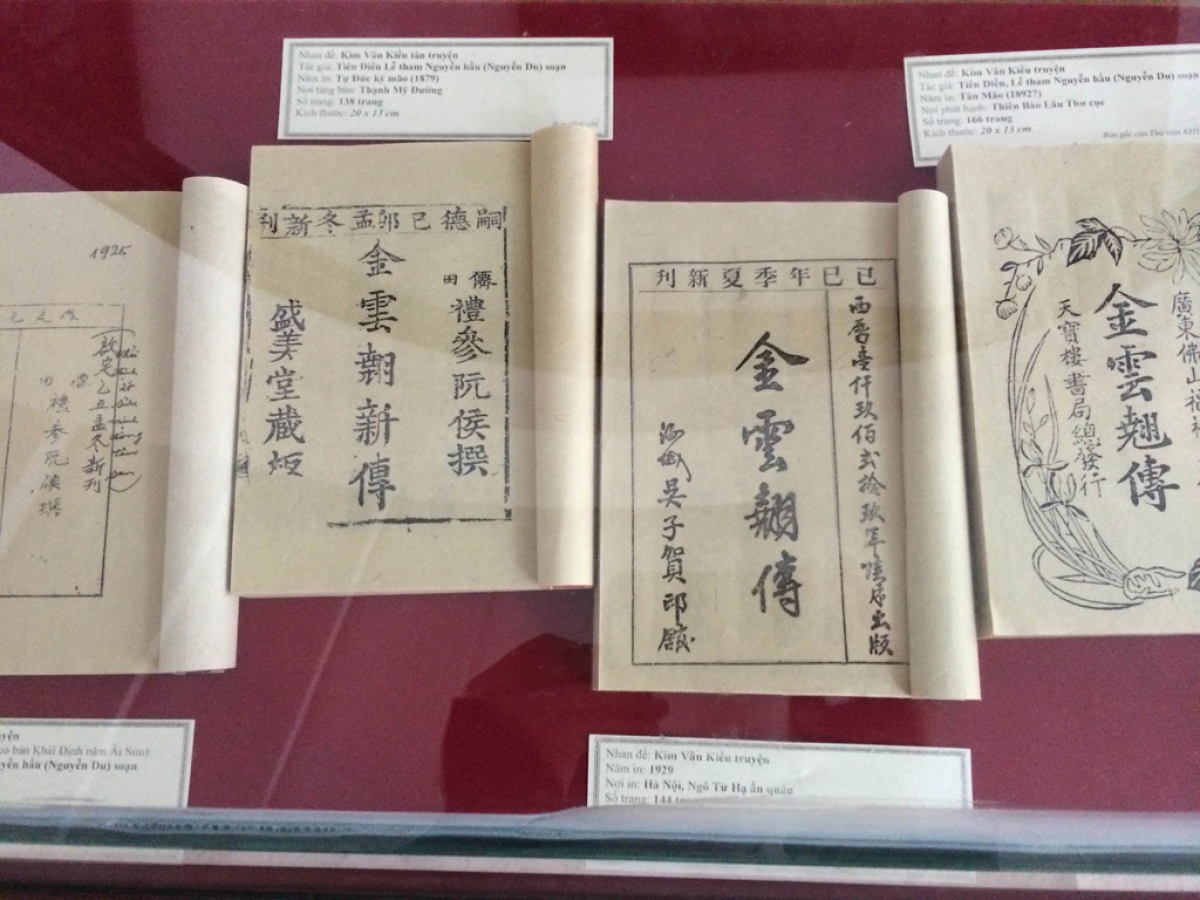 Nhan đề: Kim Vân Kiều tân truyện
Tác giả: Tiên Điền Lễ tham Nguyễn hầu (Nguyễn Du) soạn
Năm in: Tự Đức kỷ mão (1879)
Nơi tàng bản: Thạnh Mỹ Đường
Số trang: 138 trang
Kích thước: 20 x 13 cm.
Nhan đề: Kim Vân Kiều truyện
Tác giả: Tiên Điền, Lễ tham Nguyễn hầu (Nguyễn Du) soạn
Năm in: Tân Mão (1892?
Nơi phát hành: Thiên Bảo Lâu Thư cục
Số trang: 166 trang
Kích thước: 20 x 13 cm.
Bản gốc của Thư viện KHT
1925
啟定乙丑孟冬新刊
僊
田
禮參阮侯撰
嗣德己卯孟冬新刊
僊
田
禮參阮侯撰
金雲翹新傳
盛美堂藏板
己巳年季夏新刊
西曆壹仟玖佰弍拾玖年
出版
金雲翹傳
河城吳子賀印館
廣東佛山福
金雲翹傳
天寶樓書局總發行
yện
eo bản Khải Định năm Ất Sửu)
yễn hầu (Nguyễn Du) soạn
Nhan đề: Kim Vân Kiều truyện
Năm in: 1929
Nơi in: Hà Nội, Ngô Tử Hạ ấn quán
Số trang: 144